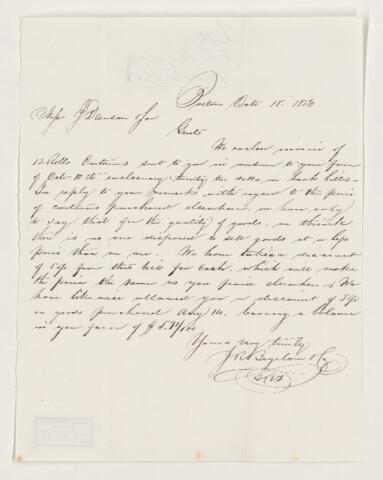 Boston Oct. 18. 1870
Mess J Danson & Son
Gents
We enclose invoice of
12 Rolls Curtains sent to you in answer to your favor
of Oct. 10th enclosing twenty two dolls in bank bills.
In reply to your remarks with regard to the price
of curtains purchased elsewhere, we have only
to say that for the quality of goods, we think
there is no one disposed to sell goods at a less
price than we are. We have taken a discount
of 5% from this bill for cash, which will make
the price the same as your price elsewhere. We
have likewise allowed you a discount of 5%
on goods purchased Aug 14. leaving a balance
in your favor of $
Yours very truly
J R Bigelow & Co